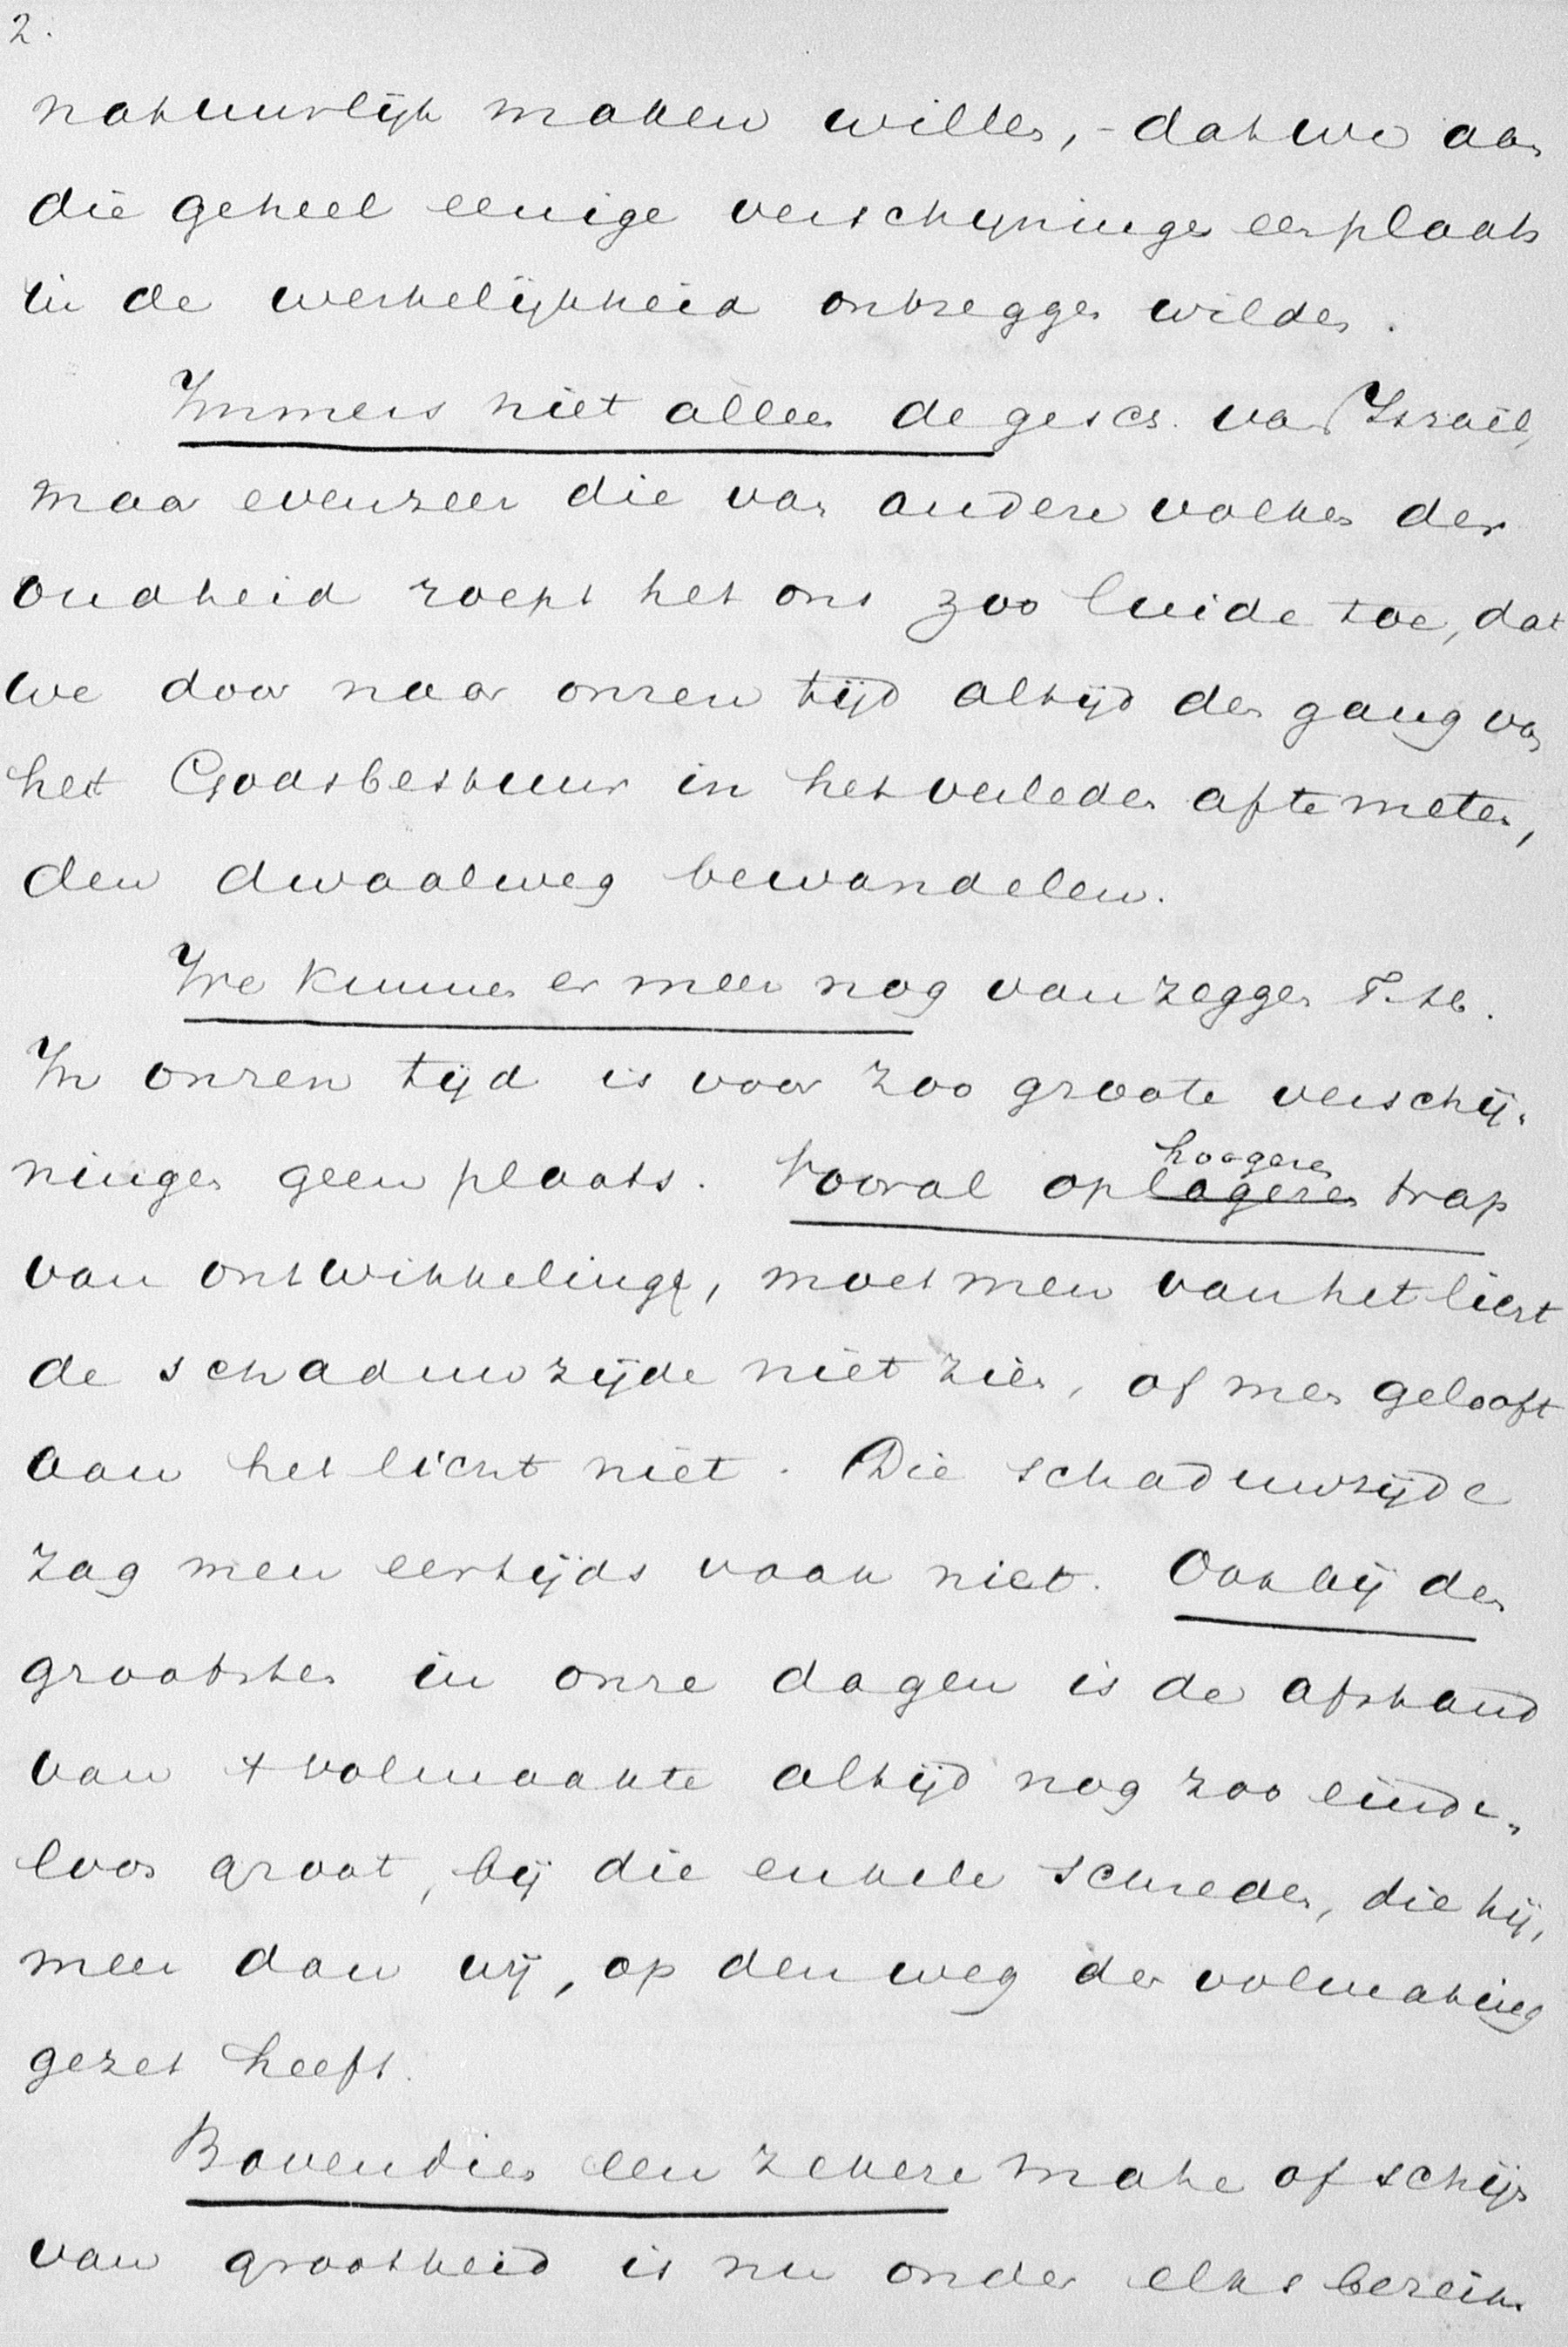 2.
natuurlijk maken willen, - dat we aan
die geheel eenige verschijningen een plaats
in de werkelijkheid ontzeggen wilden.
Immers niet alleen de gesch. van Israël,
maar evenzeer die van andere volken der
oudheid roept het ons zoo luide toe, dat
we door naar onzen tijd altijd den gang van
het Godsbestuur in het verleden af te meten,
den dwaalweg bewandelen.
We kunnen er meer nog van zeggen
In onzen tijd is voor zoo groote verschij-
ningen geen plaats. Vooral op lageren trap
hoogeren
van ontwikkeling, moet men van het licht
de schaduwzijde niet zien, of men gelooft
aan het licht niet. Die schaduwzijde
zag men eertijds vaak niet. Ook bij den
grootsten in onze dagen is de afstand
van 't volmaakte altijd nog zoo einde-
loos groot, bij die enkele schreden, die hij,
meer dan wij, op den weg der volmaking
gezet heeft.
Bovendien een zekere mate of schijn
van grootheid is nu onder elks bereik.